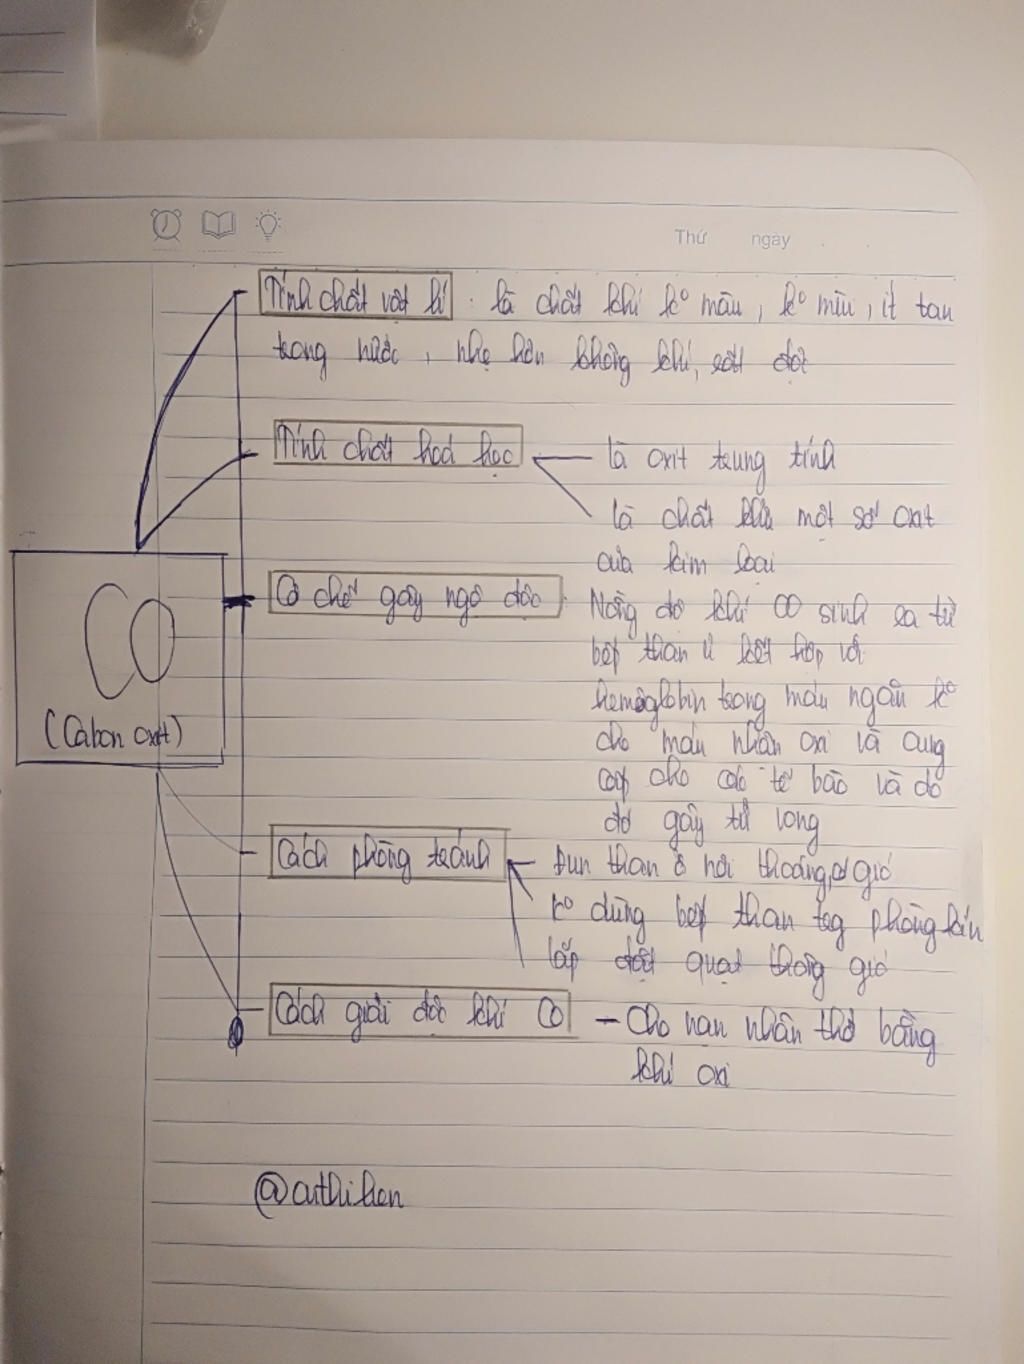 Thứ ngày
Tính chất vật lí : là chất khí kº màu, kº mùi, ít tan
trong nước, nhẹ hơn không khí, rất độc
Tính chất hoá học
là oxit trung tính
là chất khử một số oxit
của kim loại
CO
(Cabon oxit)
Cơ chế gây ngộ độc : Nồng độ khí CO sinh ra từ
bếp than ủ kết hợp với
hemôglobin trong máu ngăn kº
cho máu nhận oxi và cung
cấp cho các tế bào và do
đó gây tử vong
Cách phòng tránh
Đun than ở nơi thoáng, có gió
kº dùng bếp than tog phòng kín
lắp đặt quạt thông gió
Cách giải độc khí CO – Cho nạn nhân thở bằng
khí oxi